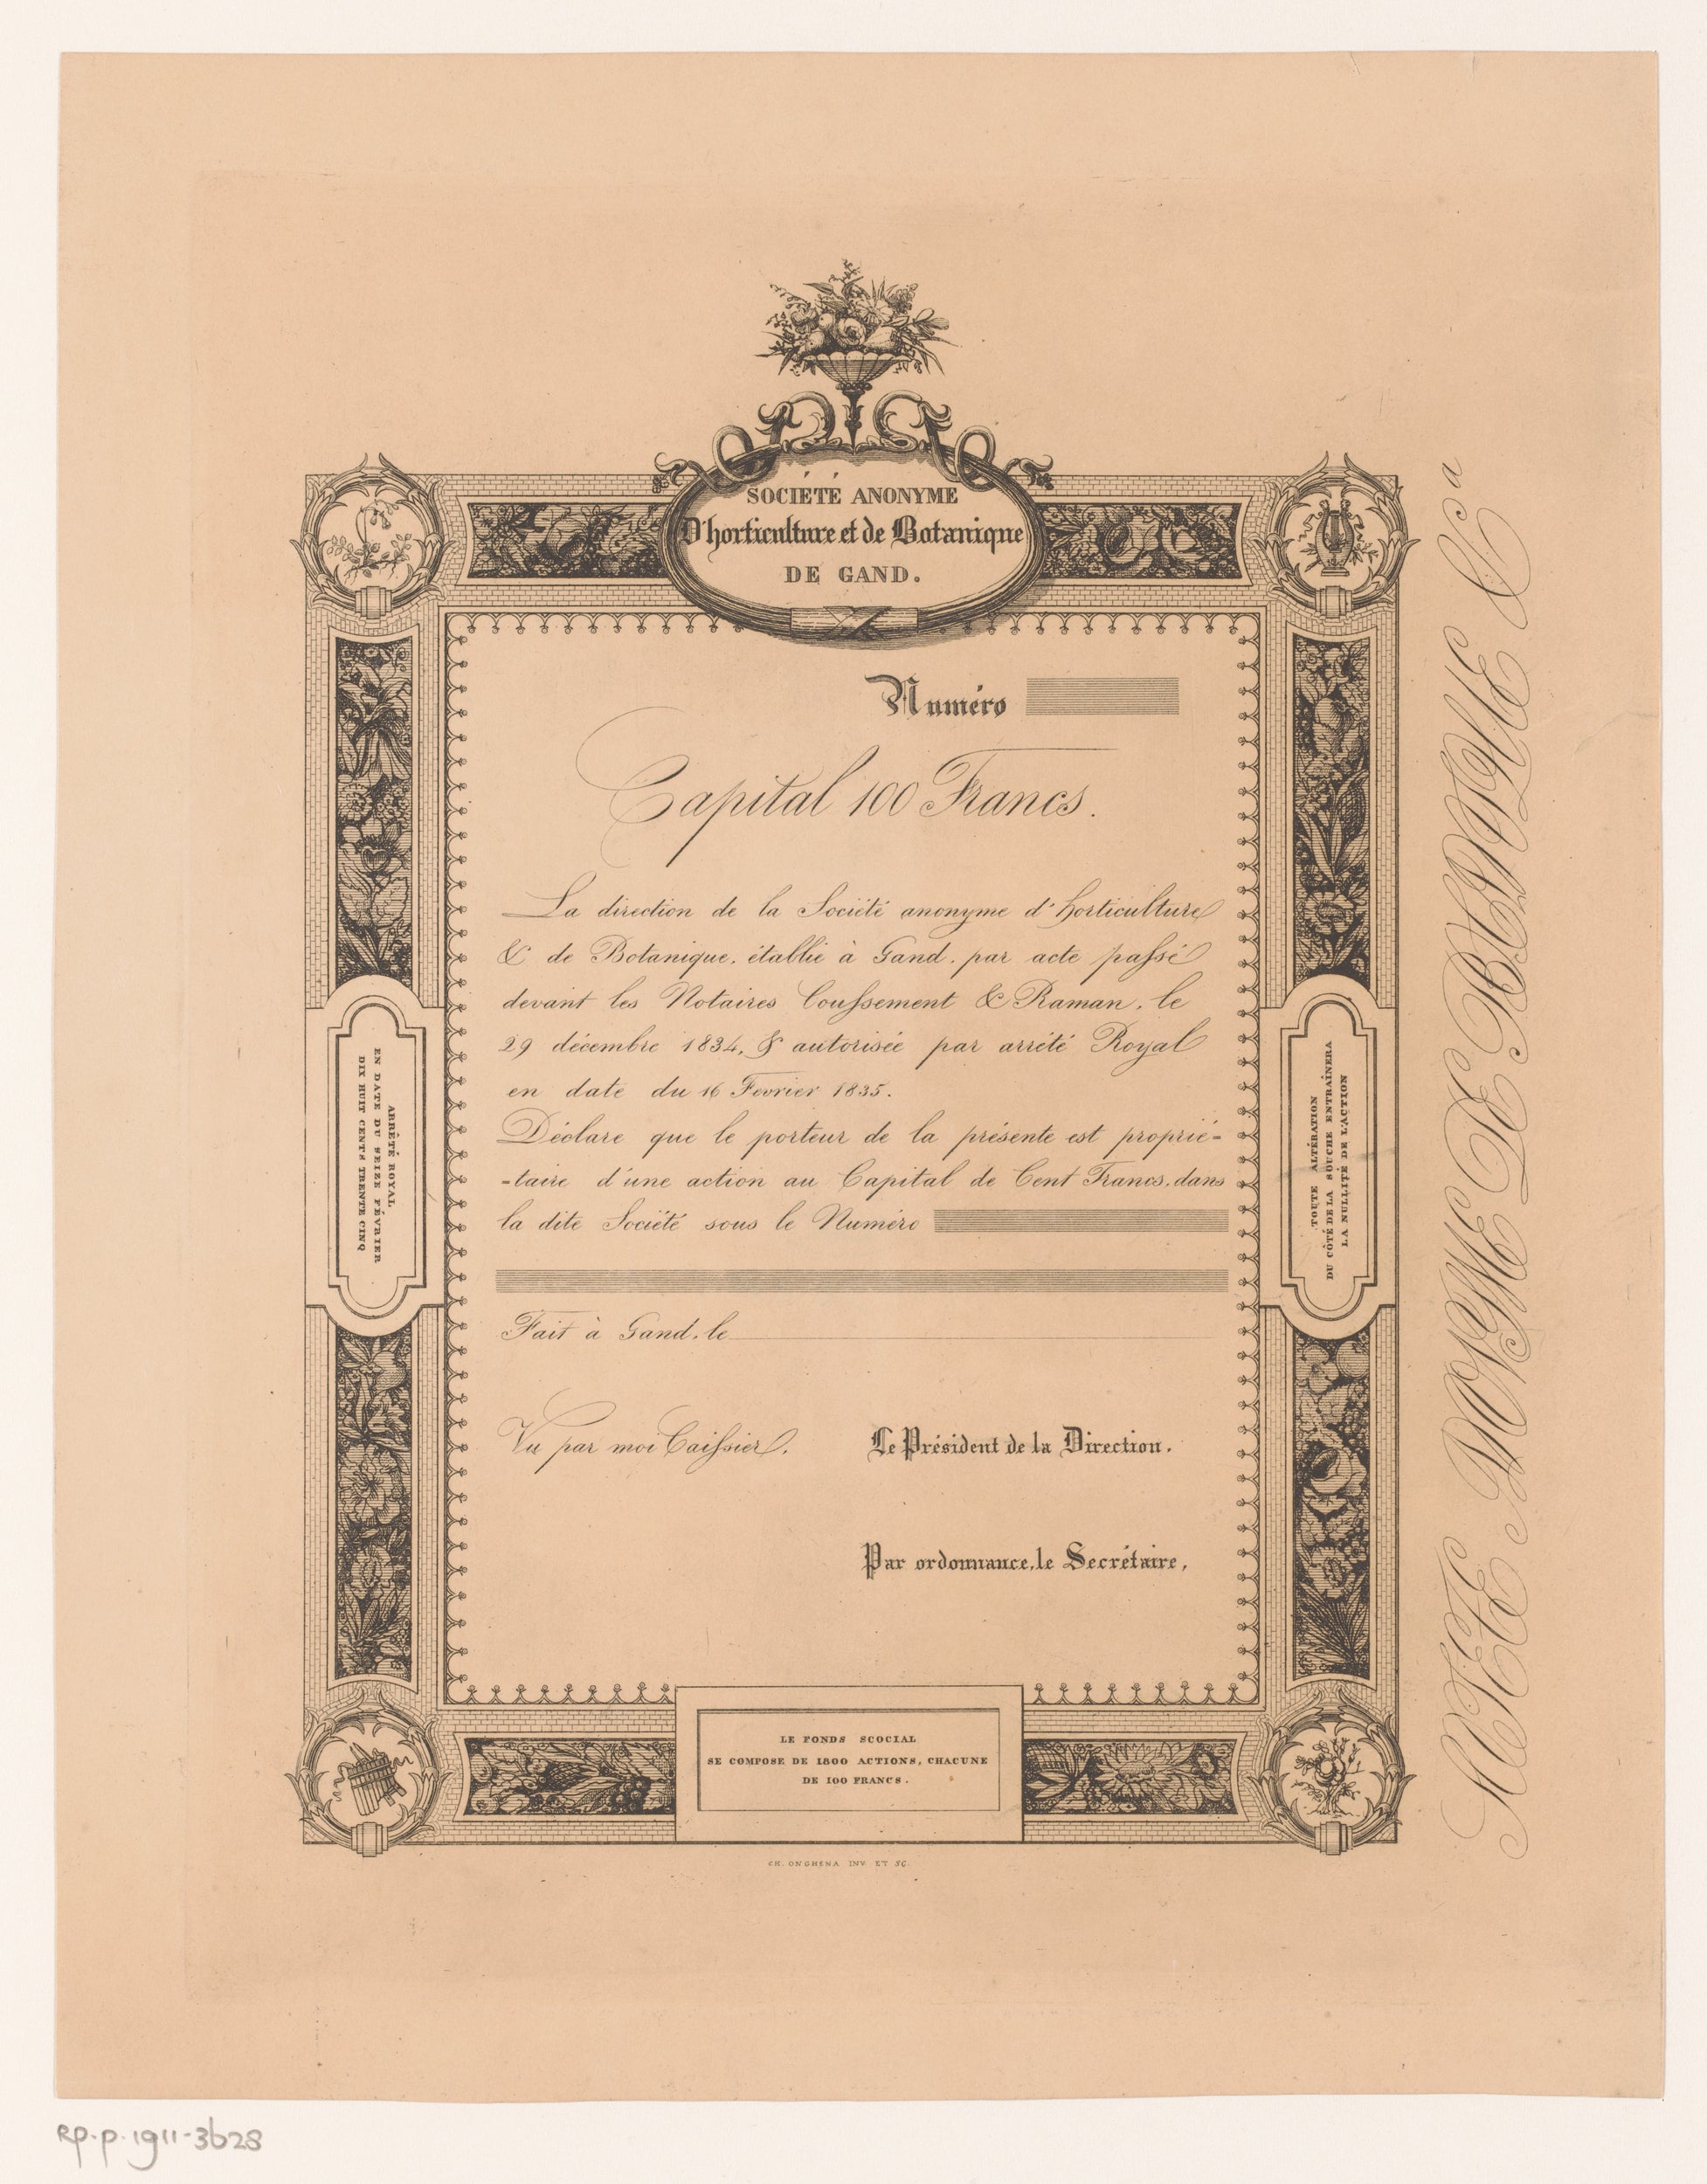 SOCIÉTÉ ANONYME
D'horticulture et de Botanique
DE GAND.
Numéro
Capital 100 Francs.
La direction de la Société anonyme d'horticulture
& de Botanique, établie à Gand, par acte passé
devant les Notaires Coussement & Raman, le
29 décembre 1834, & autorisée par arrêté Royal
en date du 16 Fevrier 1835.
Déclare que le porteur de la présente est proprié=
=taire d'une action au Capital de Cent Francs, dans
la dite Société sous le Numéro
Fait à Gand, le
Vu par moi Caissier,
Le Président de la Direction.
Par ordonnance, le Secrétaire,
ARRÊTÉ ROYAL
EN DATE DU SEIZE FÉVRIER
DIX HUIT CENTS TRENTE CINQ
TOUTE ALTÉRATION
DU CÔTÉ DE LA SOUCHE ENTRAÎNERA
LA NULLITÉ DE L'ACTION
LE FONDS SCOCIAL
SE COMPOSE DE 1800 ACTIONS, CHACUNE
DE 100 FRANCS.
CH. ONGHENA INV. ET SC.
RP-P-1911-3628